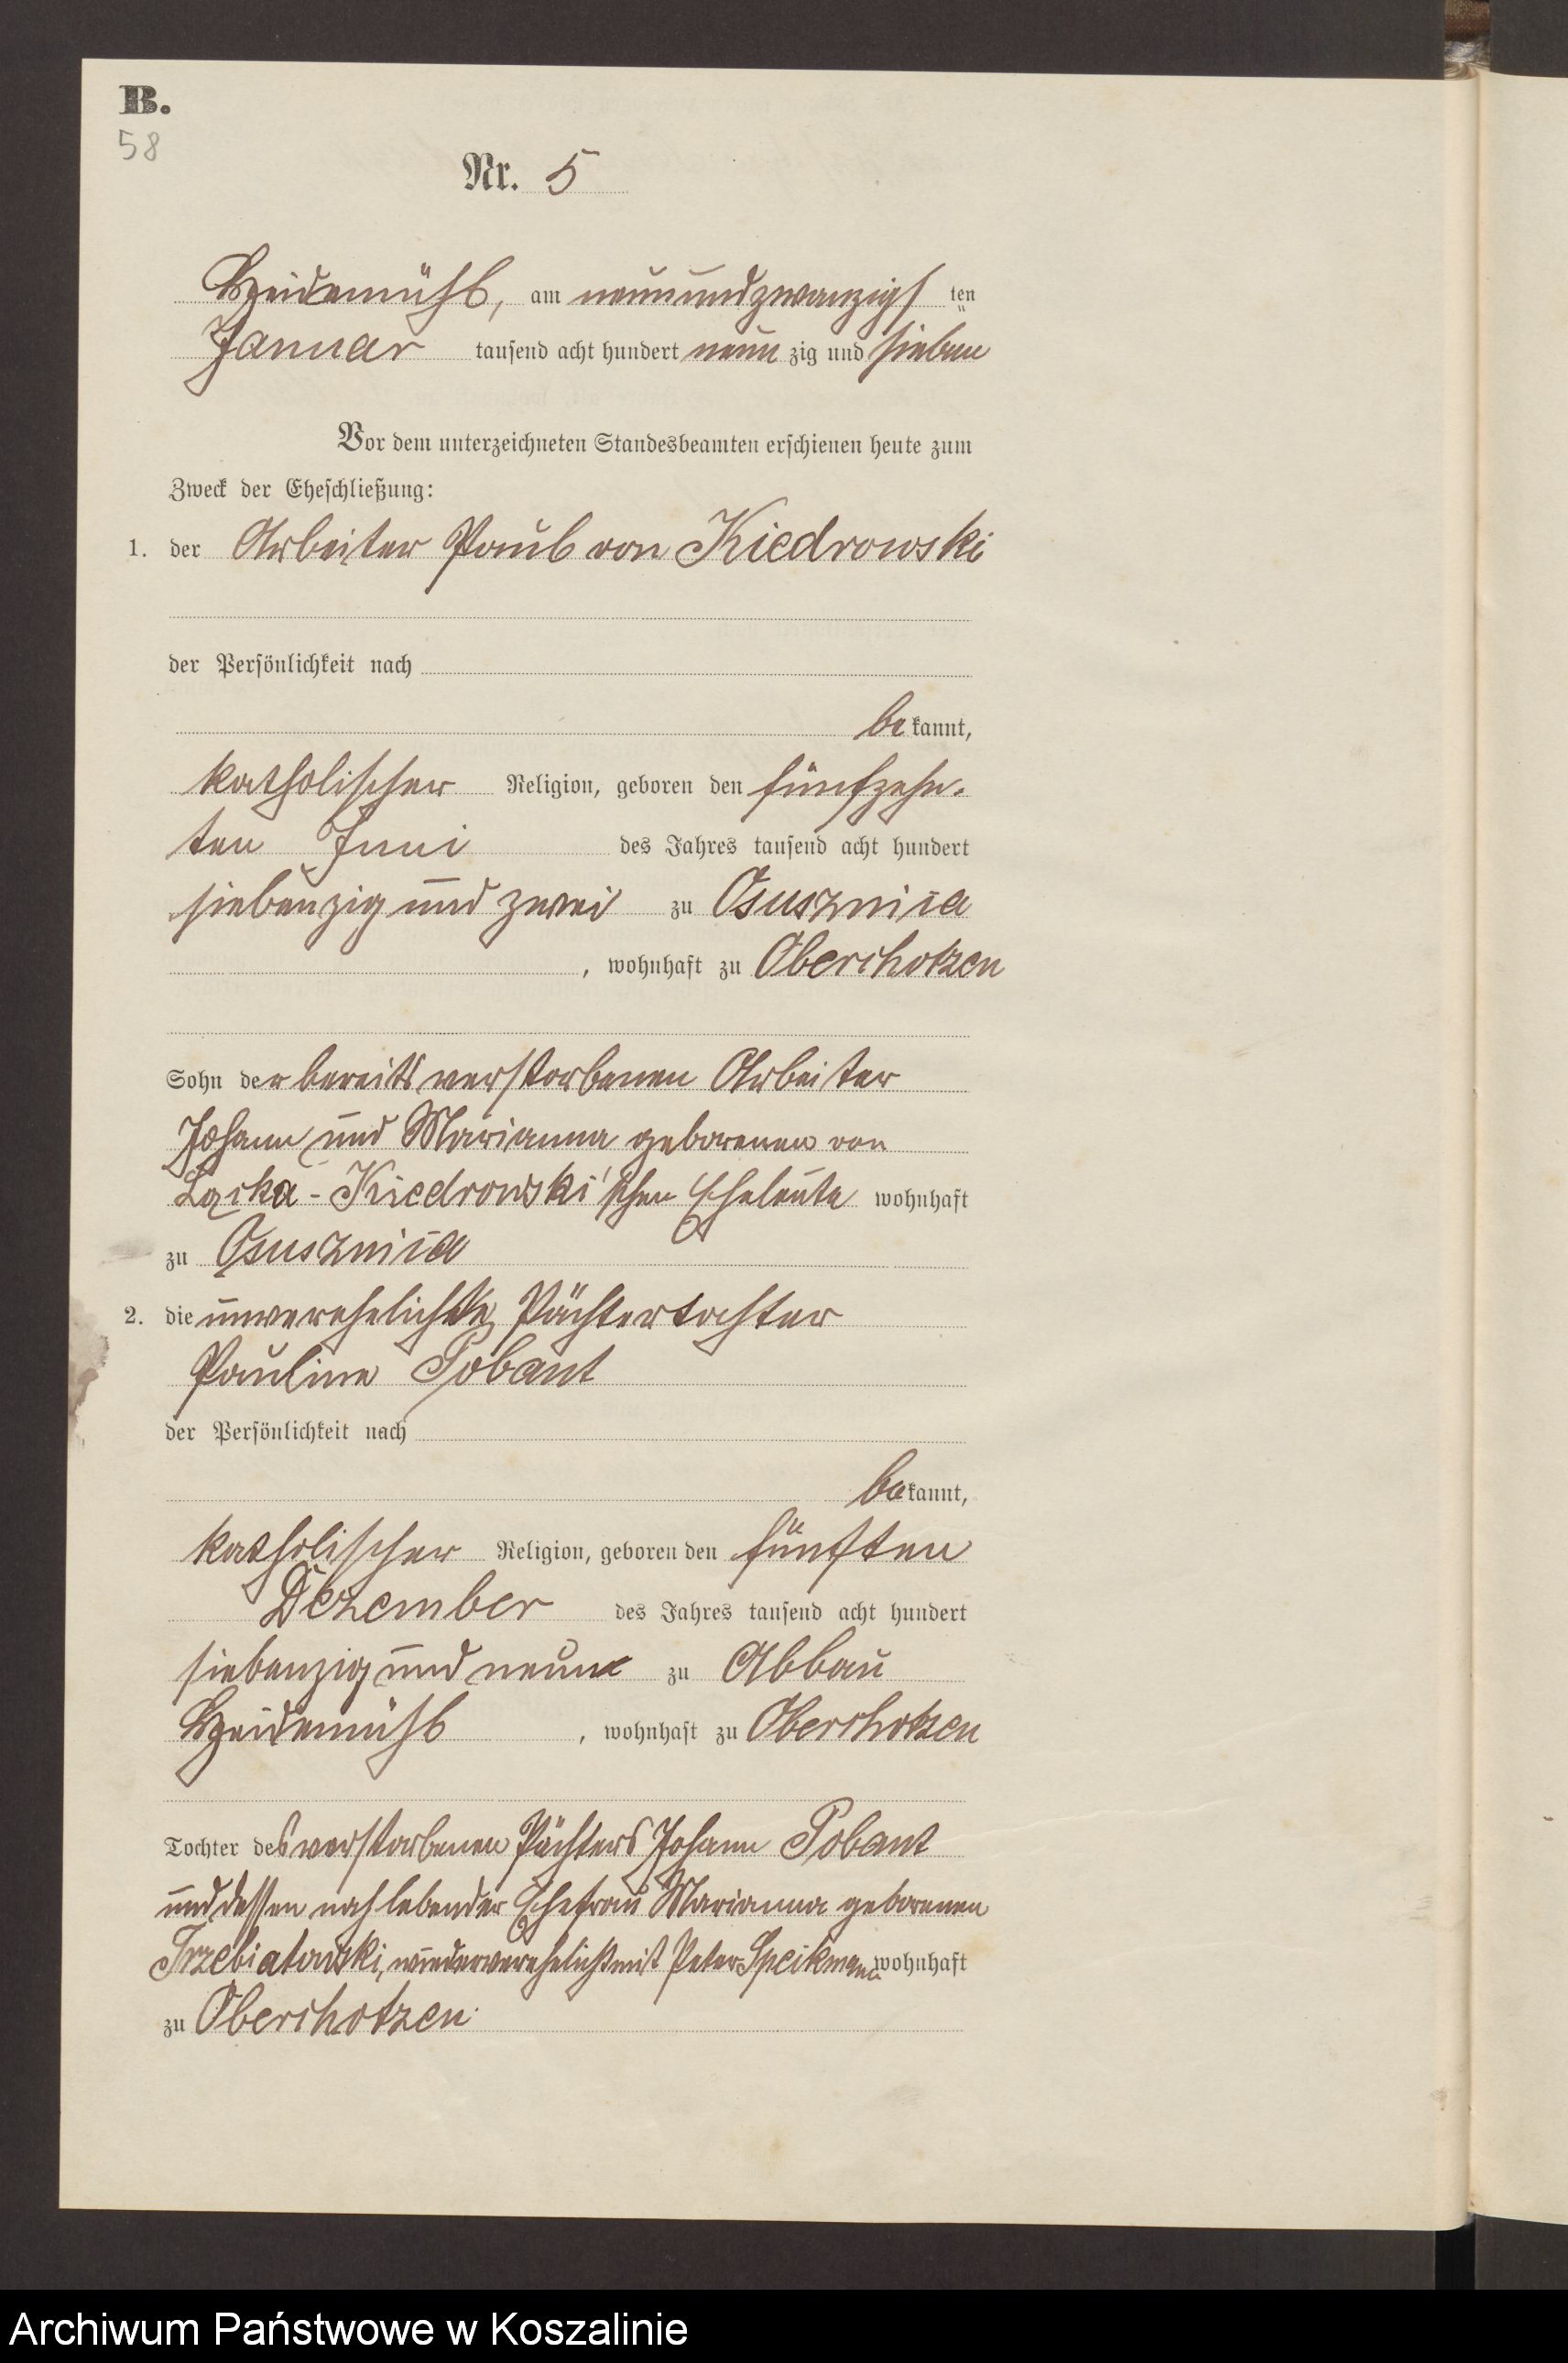 B.
58
Nr. 5
Heidemühl, am neunundzwanzigs ten
Januar tausend acht hundert neun zig und sieben
Vor dem unterzeichneten Standesbeamten erschienen heute zum
Zweck der Eheschließung:
1. der Arbeiter Paul von Kiedrowski
der Persönlichkeit nach
be kannt,
katholischer Religion, geboren den fünfzehn-
ten Juni des Jahres tausend acht hundert
siebenzig und zwei zu Osusznica
, wohnhaft zu Oberchotzen
Sohn der bereits verstorbenen Arbeiter
Johann und Marianna geborenen von
Laska-Kiedrowski'schen Eheleute wohnhaft
zu Osusznica
2. die unverehelichte Pächtertochter
Pauline Pobant
der Persönlichkeit nach
be kannt,
katholischer Religion, geboren den fünften
Dezember des Jahres tausend acht hundert
siebenzig und neun zu Abbau
Heidemühl , wohnhaft zu Oberchotzen
Tochter des verstorbenen Pächters Johann Pobant
und dessen noch lebender Ehefrau Marianna geborenen
Trzebiatowski, wiederverehelicht mit Peter Speikmann wohnhaft
zu Oberchotzen.
Archiwum Państwowe w Koszalinie